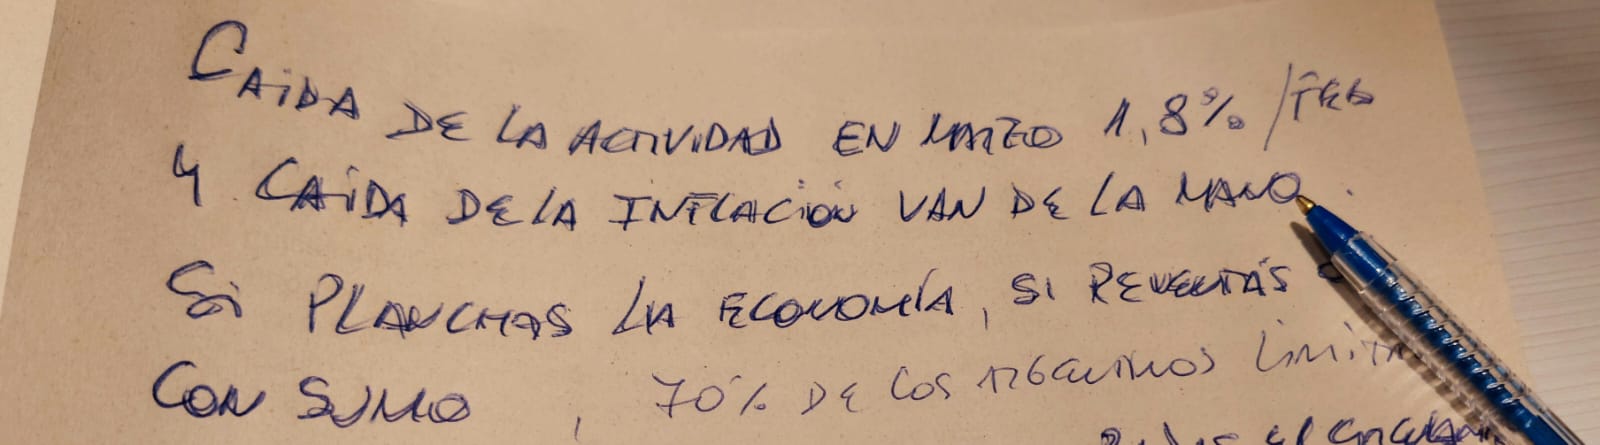 CAIDA DE LA ACTIVIDAD EN MARZO 1,8% /FEB
Y CAIDA DE LA INFLACIÓN VAN DE LA MANO.
Si PLANCHAS LA ECONOMÍA, SI REVENTÁS
CONSUMO, 70% DE LOS ARGENTINOS